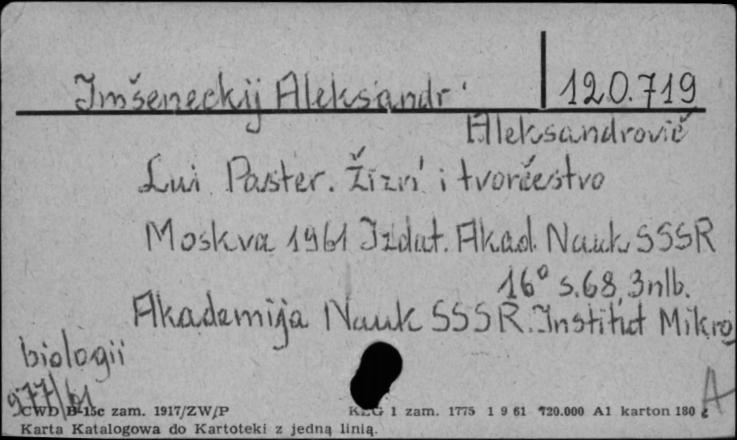 Imšeneckij Aleksandr 120.719
Aleksandrovič
Lui Paster. Žizń i tvorčestvo
Moskva 1961 Izdat. Akad. Nauk SSSR
16° s.68, 3nlb.
Akademija Nauk SSSR. Institut Mikro
biologii
977/61
CWD B-15c zam. 1917/ZW/P KZG 1 zam. 1775 1 9 61 720.000 A1 karton 180 g
A
Karta Katalogowa do Kartoteki z jedną linią.